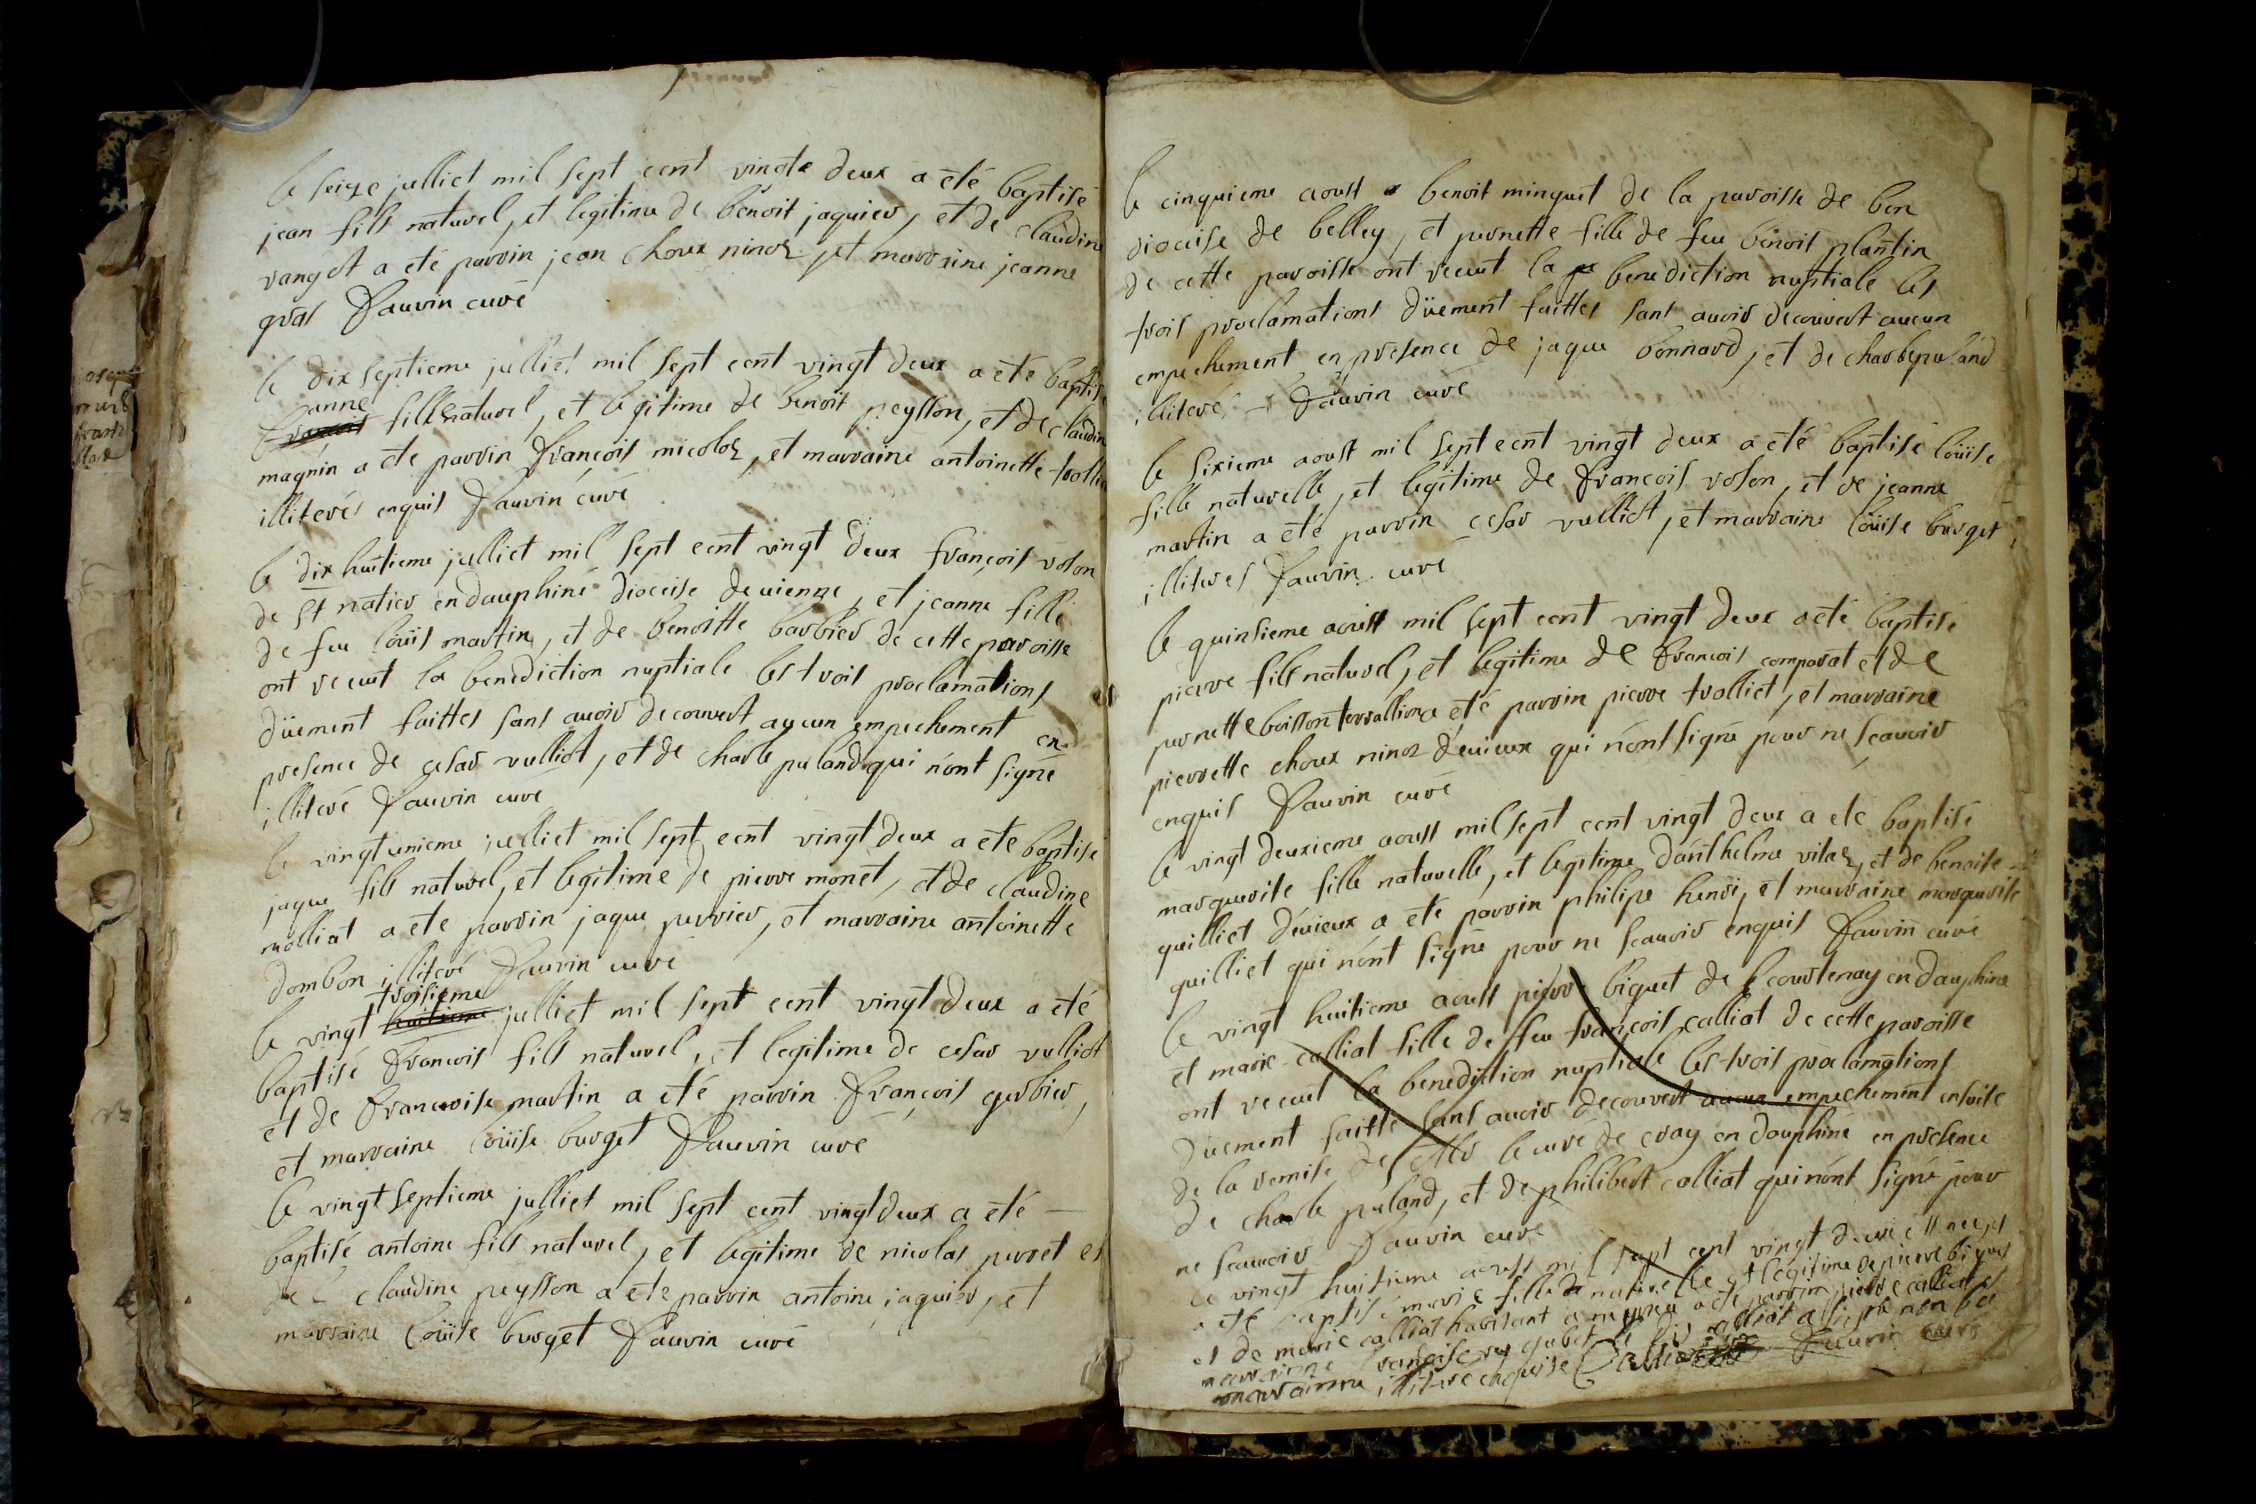 le seize julliet mil sept cent vingte deux a été baptisé
jean fils naturel, et legitime de benoit jaquier, et de claudine
vangot a eté parrin jean choux minoz, et marraine jeanne
gras Fauvin curé
le dix septieme julliet mil sept cent vingt deux a eté baptisé
anne
françois fille naturel, et legitime de benoit peysson, et de claudine
magnin a ete parrin françois micoloz, et marraine antoinette trollie
illiterés enquis Fauvin curé
le dix huitieme julliet mil sept cent vingt deux françois roson
de st natier en dauphiné diocise de vienne, et jeanne fille
de feu loüis martin, et de benoitte barbier de cette paroisse
ont recuit la benediction nuptiale les trois proclamations
düement faittes sans avoir decouvert aucun empechement en
presence de cesar vulliot, et de charle puland qui n'ont signé
illiteré Fauvin curé
le vingt unieme julliet mil sept cent vingt deux a eté baptisé
jaque fils naturel, et legitime de pierre monet, et de claudine
molliat a ete parrin jaque perrier, et marraine antoinette
dombon illiteré Fauvin curé
troisieme
le vingt huitieme julliet mil sept cent vingt deux a eté
baptisé francois fils naturel, et legitime de cesar vulliot
et de francoise martin a eté parrin françois gerbier,
et marraine loüise burget Fauvin curé
le vingt septieme julliet mil sept cent vingt deux a eté
baptisé antoine fils naturel, et legitime de nicolas perret et
de claudine peysson a ete parrin antoine jaquier, et
marraine loüise burget Fauvin curé
le cinquieme aoust benoit minguet de la paroisse de ben
diocise de belley, et pernette fille de feu benoit plantin
de cette paroisse ont recuit la benediction nuptiale les
trois proclamations düement faittes sans avoir decouvert aucun
empechement en presence de jaque bonnard, et de charle puland
illiterés Fauvin curé
le sixieme aoust mil sept cent vingt deux a eté baptisé loüise
fille naturelle, et legitime de françois roson, et de jeanne
martin a eté parrin cesar vulliot, et marraine loüise burget
illiterés Fauvin curé
le quinsieme aoust mil sept cent vingt deux a eté baptisé
pierre fils naturel, et legitime de francois comparat et de
pernette boisson tervallion a eté parrin pierre trolliet, et marraine
pierrette choux minoz d'evieux qui n'ont signé pour ne scavoir
enquis Fauvin curé
le vingt deuxieme aoust mil sept cent vingt deux a eté baptisé
marguerite fille naturelle, et legitime d'anthelme vitaz, et de benoite
quilliet d'evieux a eté parrin philipe henri, et marraine marguerite
quilliet qui n'ont signé pour ne scavoir enquis Fauvin curé
le vingt huitieme aoust pierre biguet de courtenay en dauphine
et marie calliat fille de feu françois calliat de cette paroisse
ont recuit la benediction nuptiale les trois proclamations
düement faitte sans avoir decouvert aucun empechement ensuite
de la remise de Mr le curé de cray en dauphiné en presence
de charle puland, et de philibert calliat qui n'ont signé pour
ne scavoir Fauvin curé
le vingt huitieme aoust mil sept cent vingt deux est nee et
a eté baptisé marie fille naturelle et legitime de pierre biguet
et de marie calliat habitant a a eté parrin pierre calliat et
marraine francoise calliat a signé non la
marraine illitere enquise Calliat Fauvin curé